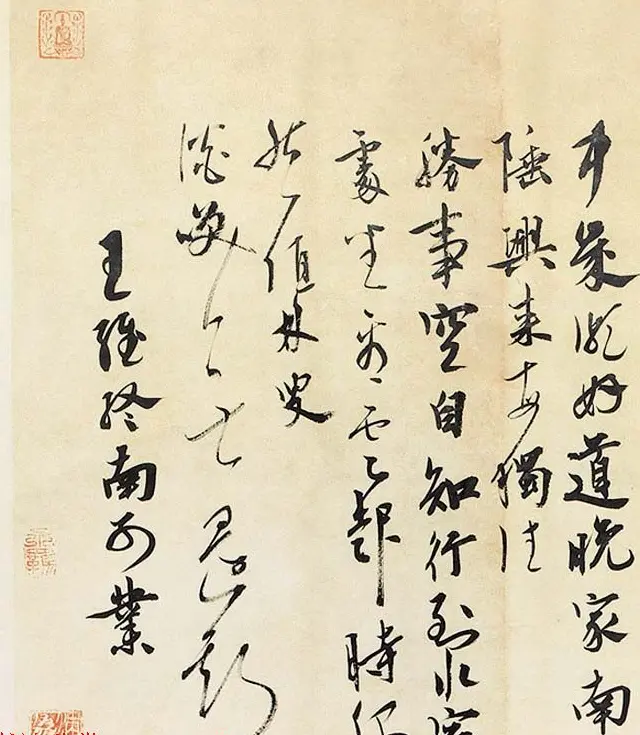 中歲頗好道晚家南
陲興來每獨往
勝事空自知行到水窮
處坐看雲起時偶
然值林叟
談笑無還期
王維終南別業